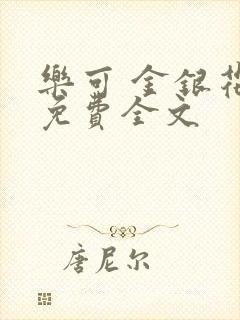 樂可 金銀花
免費全文
唐尼尔